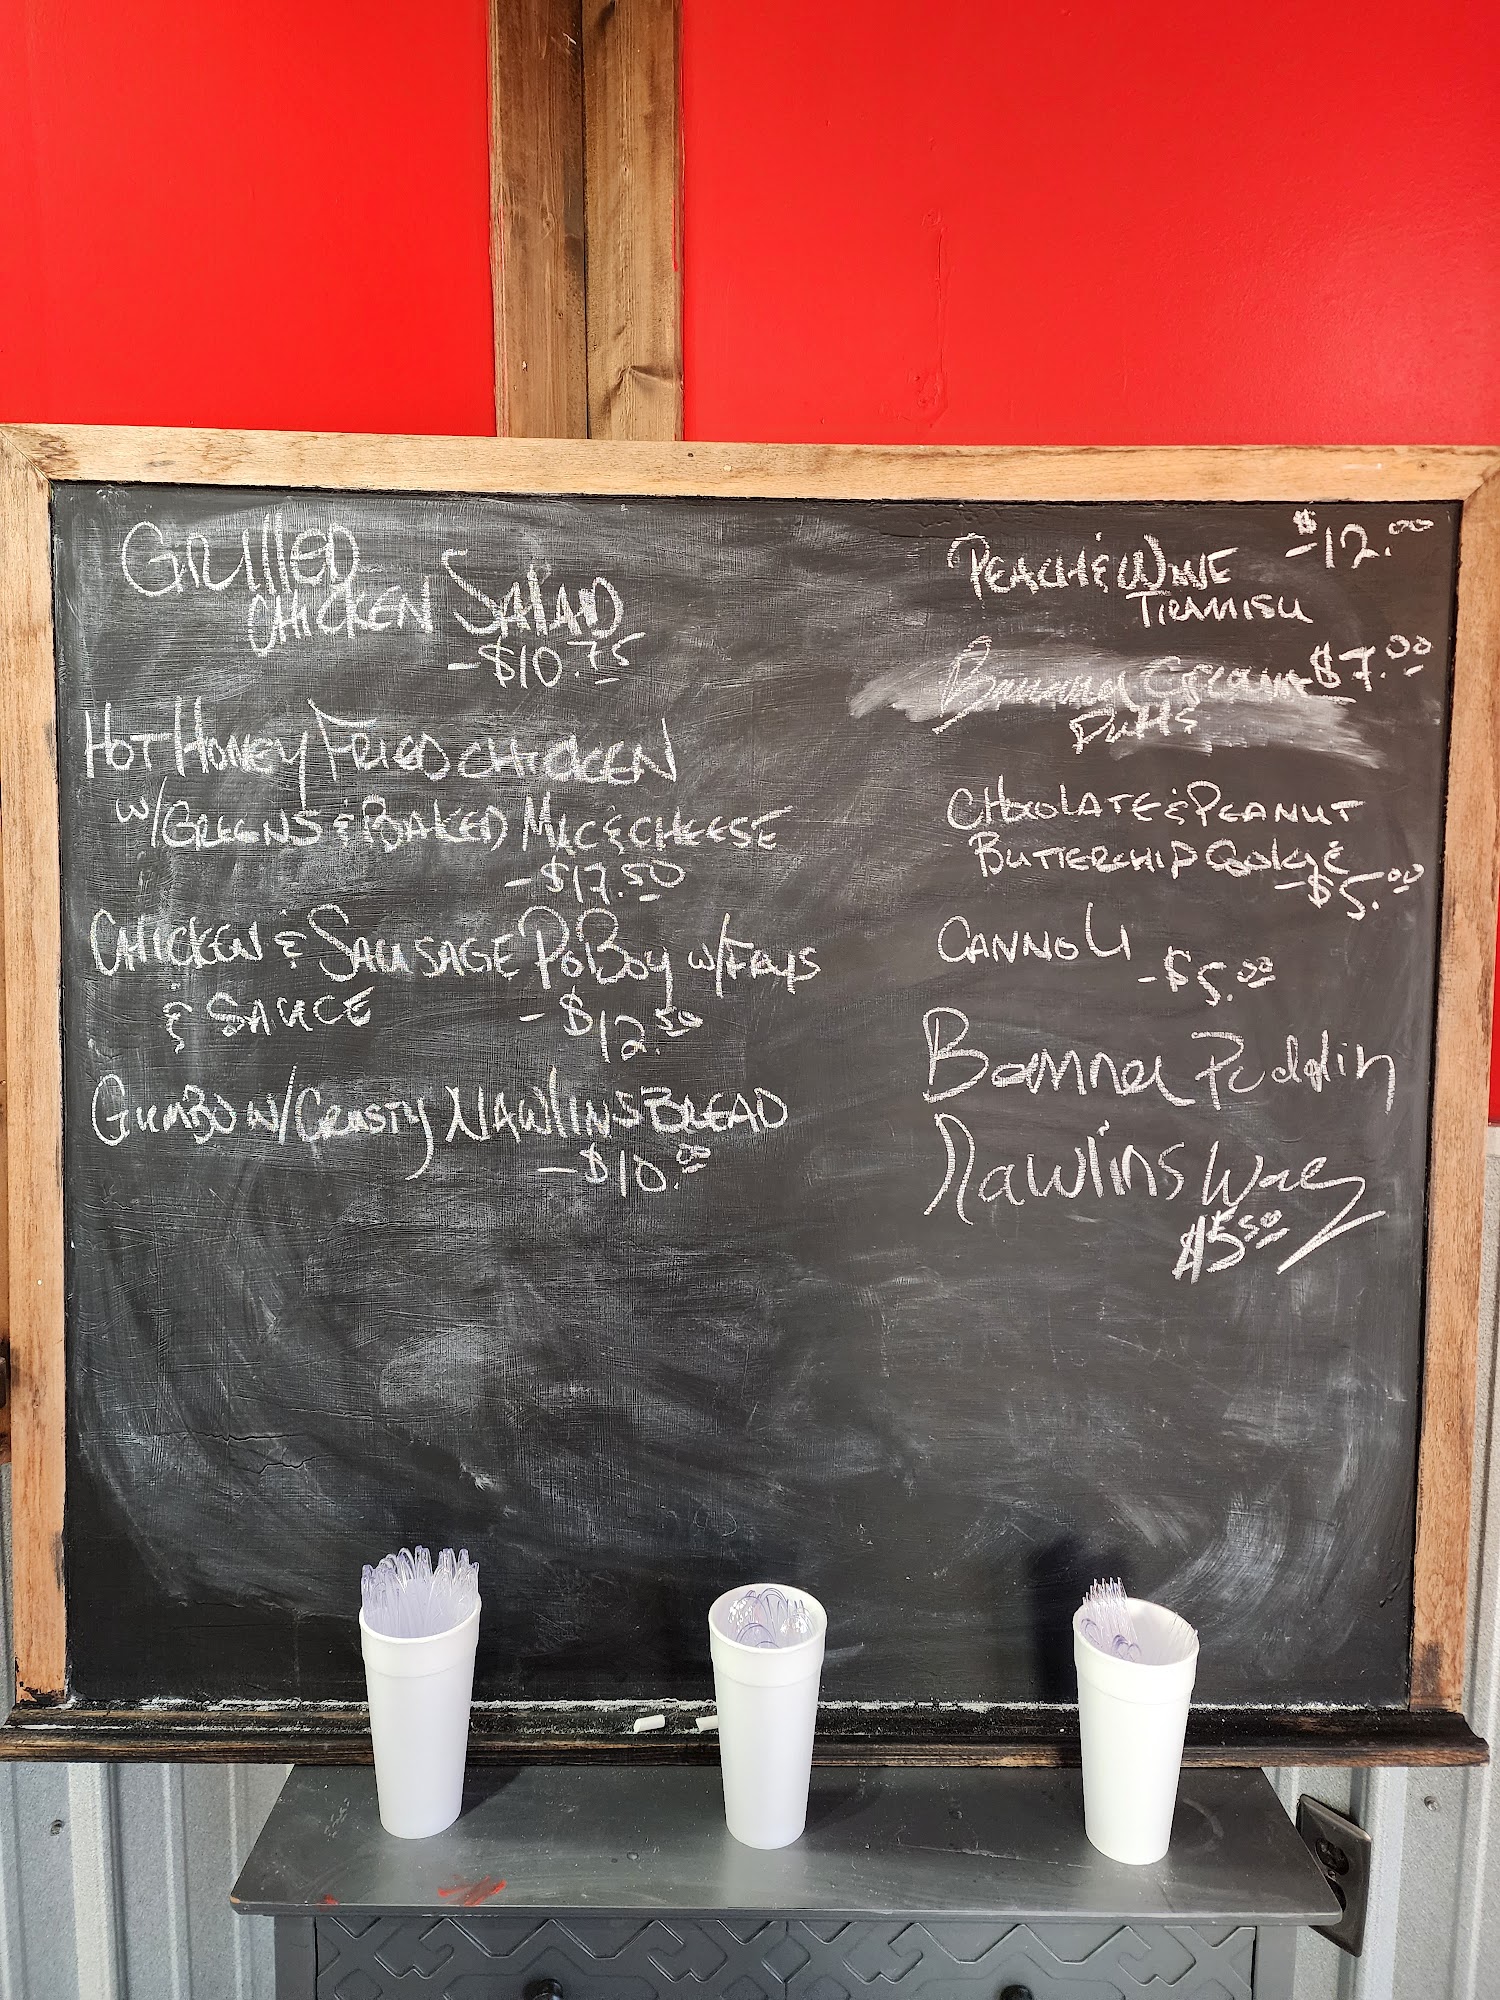 GRIlleD
CHICKEN SAlAD
-$10.75
HOT HONEY FRIED CHICKEN
w/GREENS & BAKED MAC & CHEESE
-$17.50
CHICKEN & SAUSAGE PoBoy w/FRYS
& SAUCE -$12.50
GUMBO w/CRUSTY NAWlINS BREAD
-$10.00
PEACH & WINE -$12.00
TIRAMISU
Banana Cream $7.00
Puffs
CHOCOLATE & PEANUT
BUTTERCHIP COOKIE
-$5.00
CANNOLI
-$5.00
Banana Puddin
Nawlins Way
$5.50